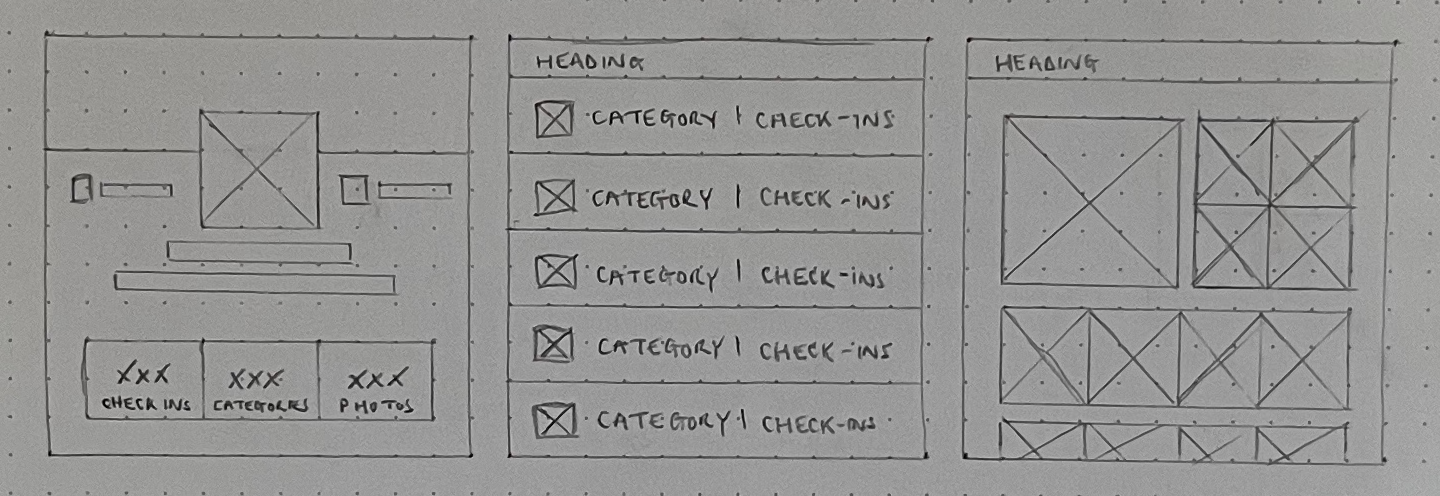 XXX
CHECK INS
XXX
CATEGORIES
XXX
PHOTOS
HEADING
CATEGORY | CHECK-INS
CATEGORY | CHECK-INS
CATEGORY | CHECK-INS
CATEGORY | CHECK-INS
CATEGORY | CHECK-INS
HEADING